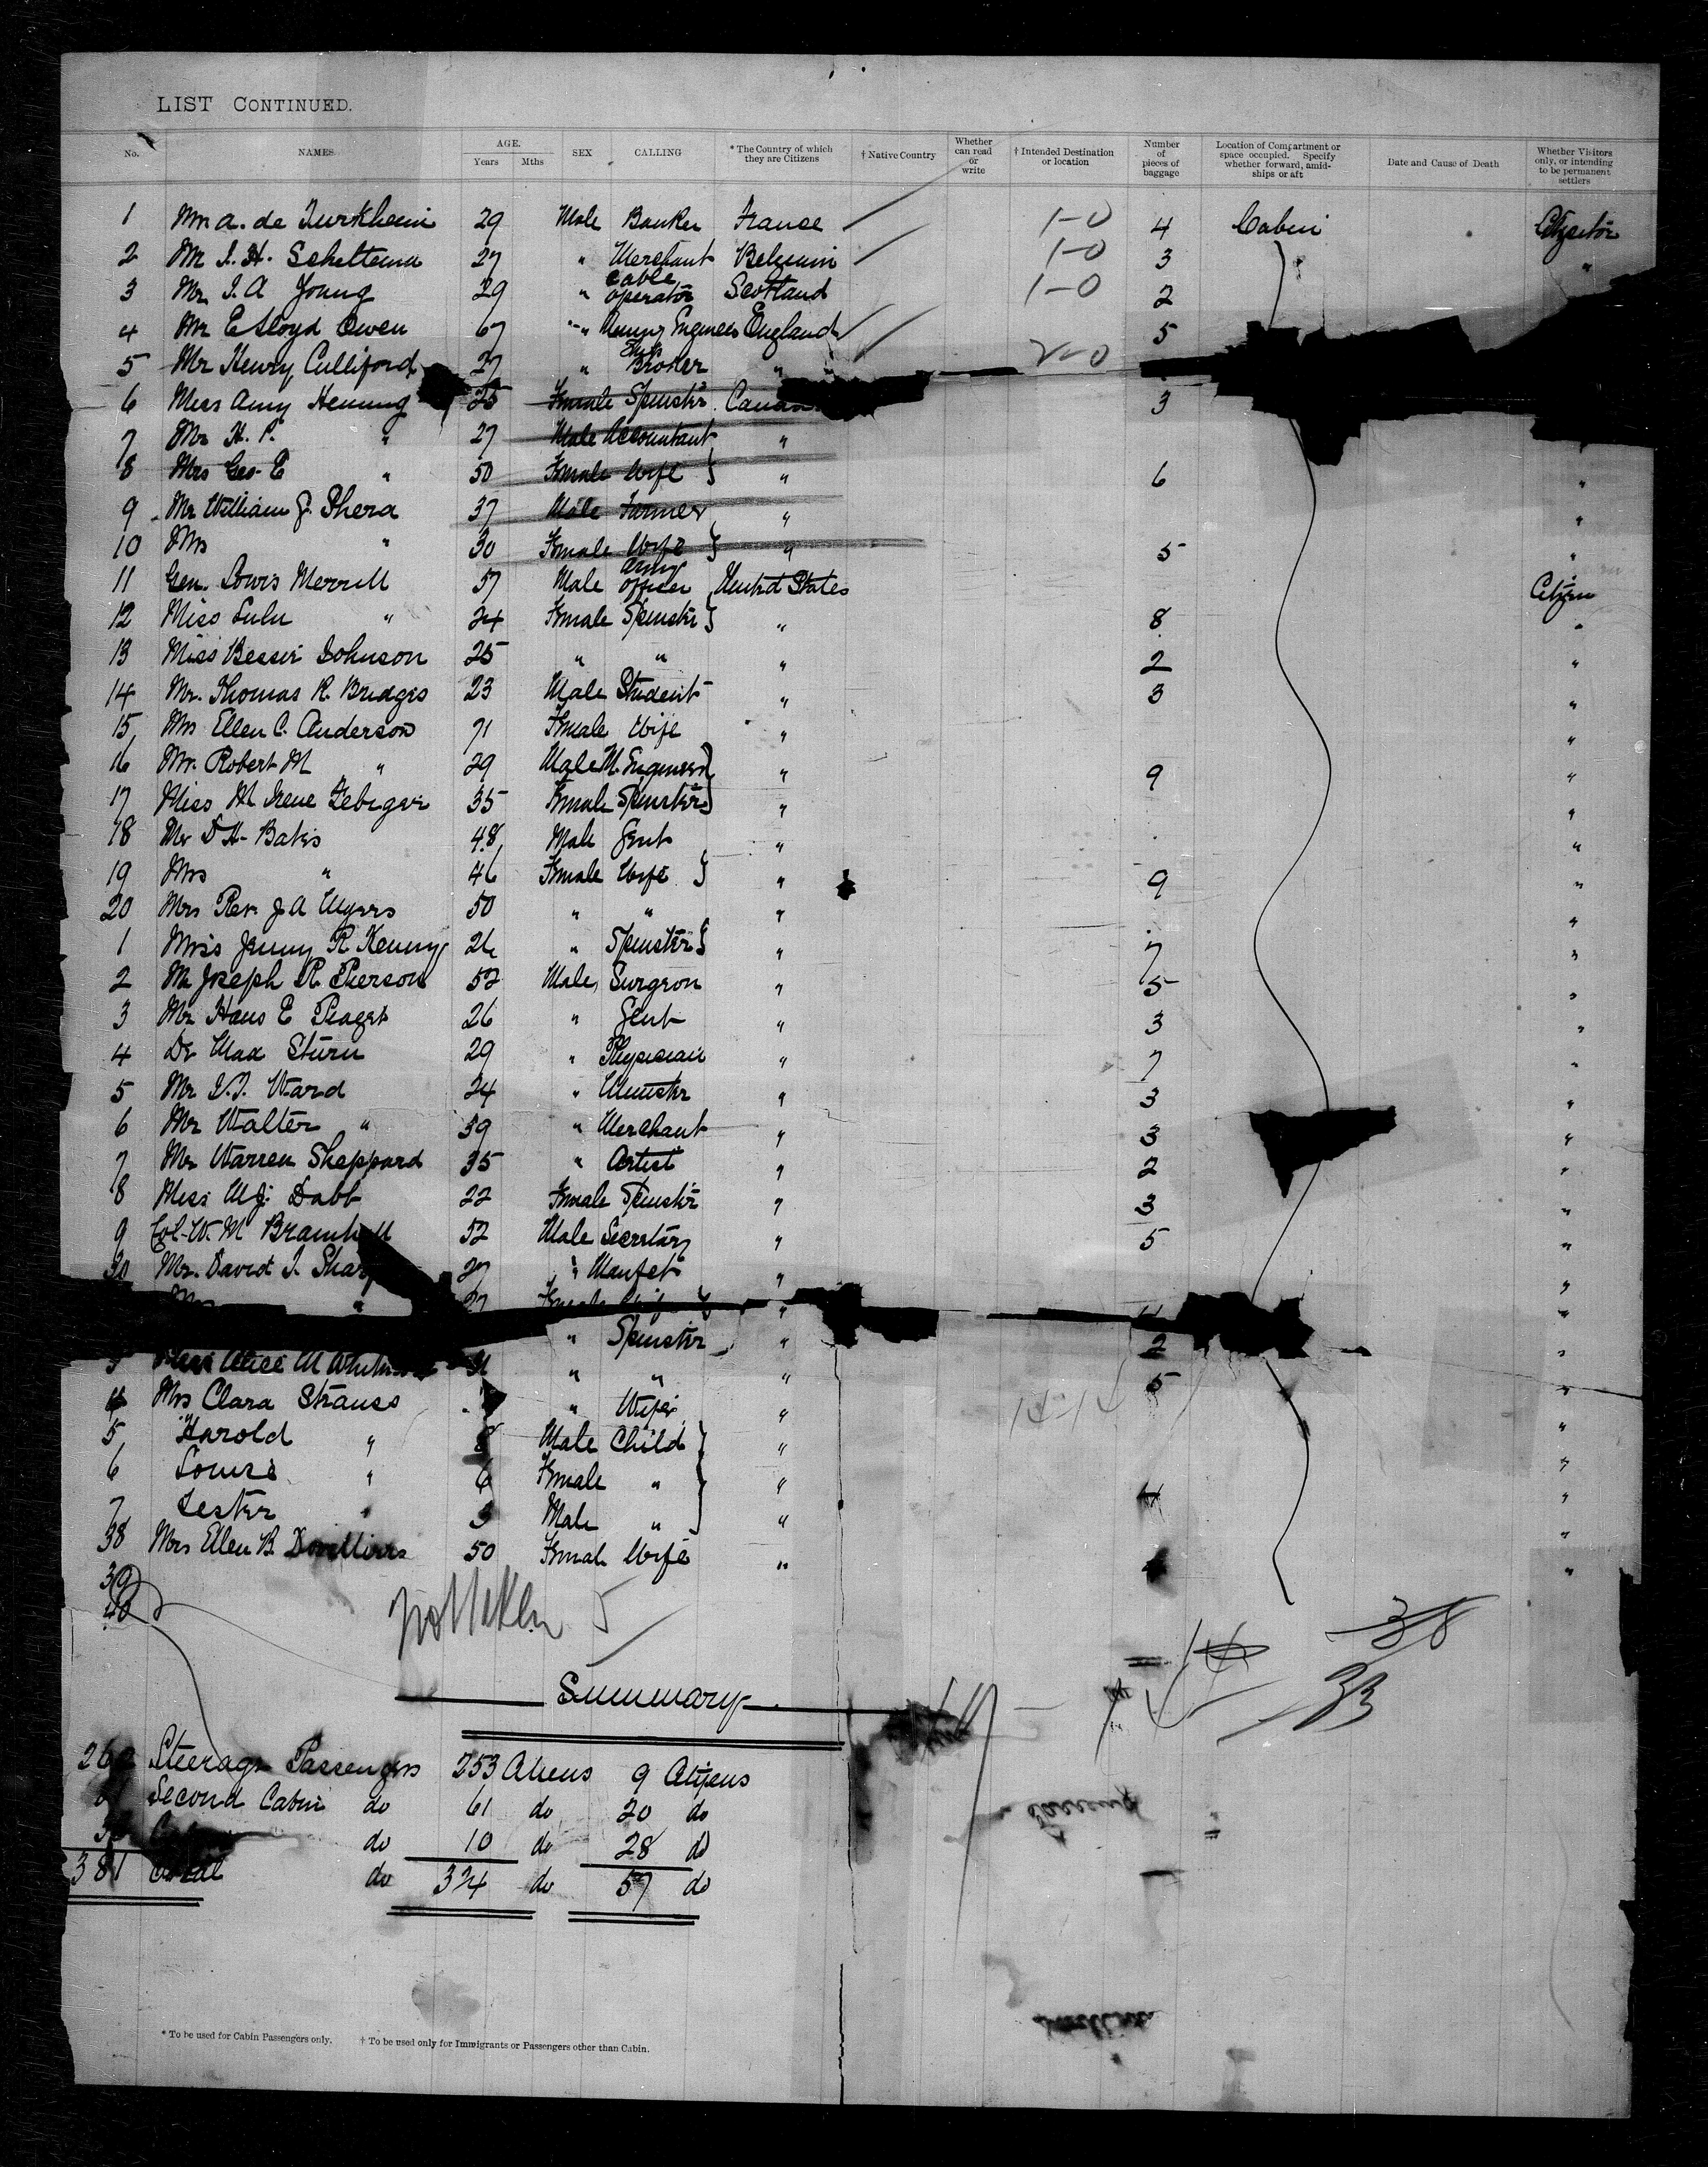 LIST CONTINUED.
No. NAMES AGE. Years Mths SEX CALLING * The Country of which they are Citizens † Native Country Whether can read or write † Intended Destination or location Number of pieces of baggage Location of Compartment or space occupied. Specify whether forward, amidships or aft Date and Cause of Death Whether Visitors only, or intending to be permanent settlers
1 Mr. A. de Turkheim 29 Male Banker France 1-0 4 Cabin
2 Mr J. H. Scheltema 27 " Merchant Belgium 1-0 3 "
3 Mr. J. A Young 29 " Cable operator Scotland 1-0 2
4 Mr E Lloyd Owen 67 " Engineer England 5
5 Mr Henry Culliford 27 " Broker " 2-0
6 Miss Amy Hening 25 Female Spinster 3
7 Mr H. P. " 27 Male Accountant "
8 Mrs Geo. E " 50 Female Wife } " 6 "
9 Mr William J. Shera 37 Male Farmer " "
10 Mrs " 30 Female Wife } " 5 "
11 Gen. Lewis Merrill 57 Male Army officer United States Citizen
12 Miss Lulu " 24 Female Spinster } " 8 "
13 Miss Bessie Johnson 25 " " " 2 "
14 Mr. Thomas R. Bridges 23 Male Student " 3 "
15 Mrs Ellen C. Anderson 71 Female Wife " "
16 Mr. Robert M " 29 Male M. Engineer } " 9 "
17 Miss M Irene Febiger 35 Female Spinster } " "
18 Mr D H. Bates 48 Male Gent " "
19 Mrs " 46 Female Wife } " 9 "
20 Mrs Rev. J A Myers 50 " " " "
1 Miss Jenny R Kenny 26 " Spinster } " 7 "
2 Mr Joseph R. Pierson 52 Male Surgeon " 5 "
3 Mr Hans E Piaget 26 " Gent " 3 "
4 Dr Max Sturm 29 " Physician " 7 "
5 Mr V. J. Ward 24 " Minister " 3 "
6 Mr Walter " 39 " Merchant " 3 "
7 Mr Warren Sheppard 35 " Artist " 2 "
8 Miss M J. Dabb 22 Female Spinster " 3 "
9 Col. W. M 52 Male Secretary " 5 "
30 Mr. David J. 27 " Manfctr " "
" 27 "
" Spinster " 2 "
Alice M " " " 5 "
4 Mrs Clara Strauss " Wife " "
5 Harold " 8 Male Child } " "
6 Louise " 6 Female " } " "
7 Lester " 3 Male " } " 4 "
38 Mrs Ellen B. 50 Female Wife " "
39
40
5
38
33
Summary
Steerage Passengers 253 Aliens 9 Citizens
Second Cabin do 61 do 20 do
do 10 do 28 do
381 Total do 324 do 57 do
* To be used for Cabin Passengers only. † To be used only for Immigrants or Passengers other than Cabin.